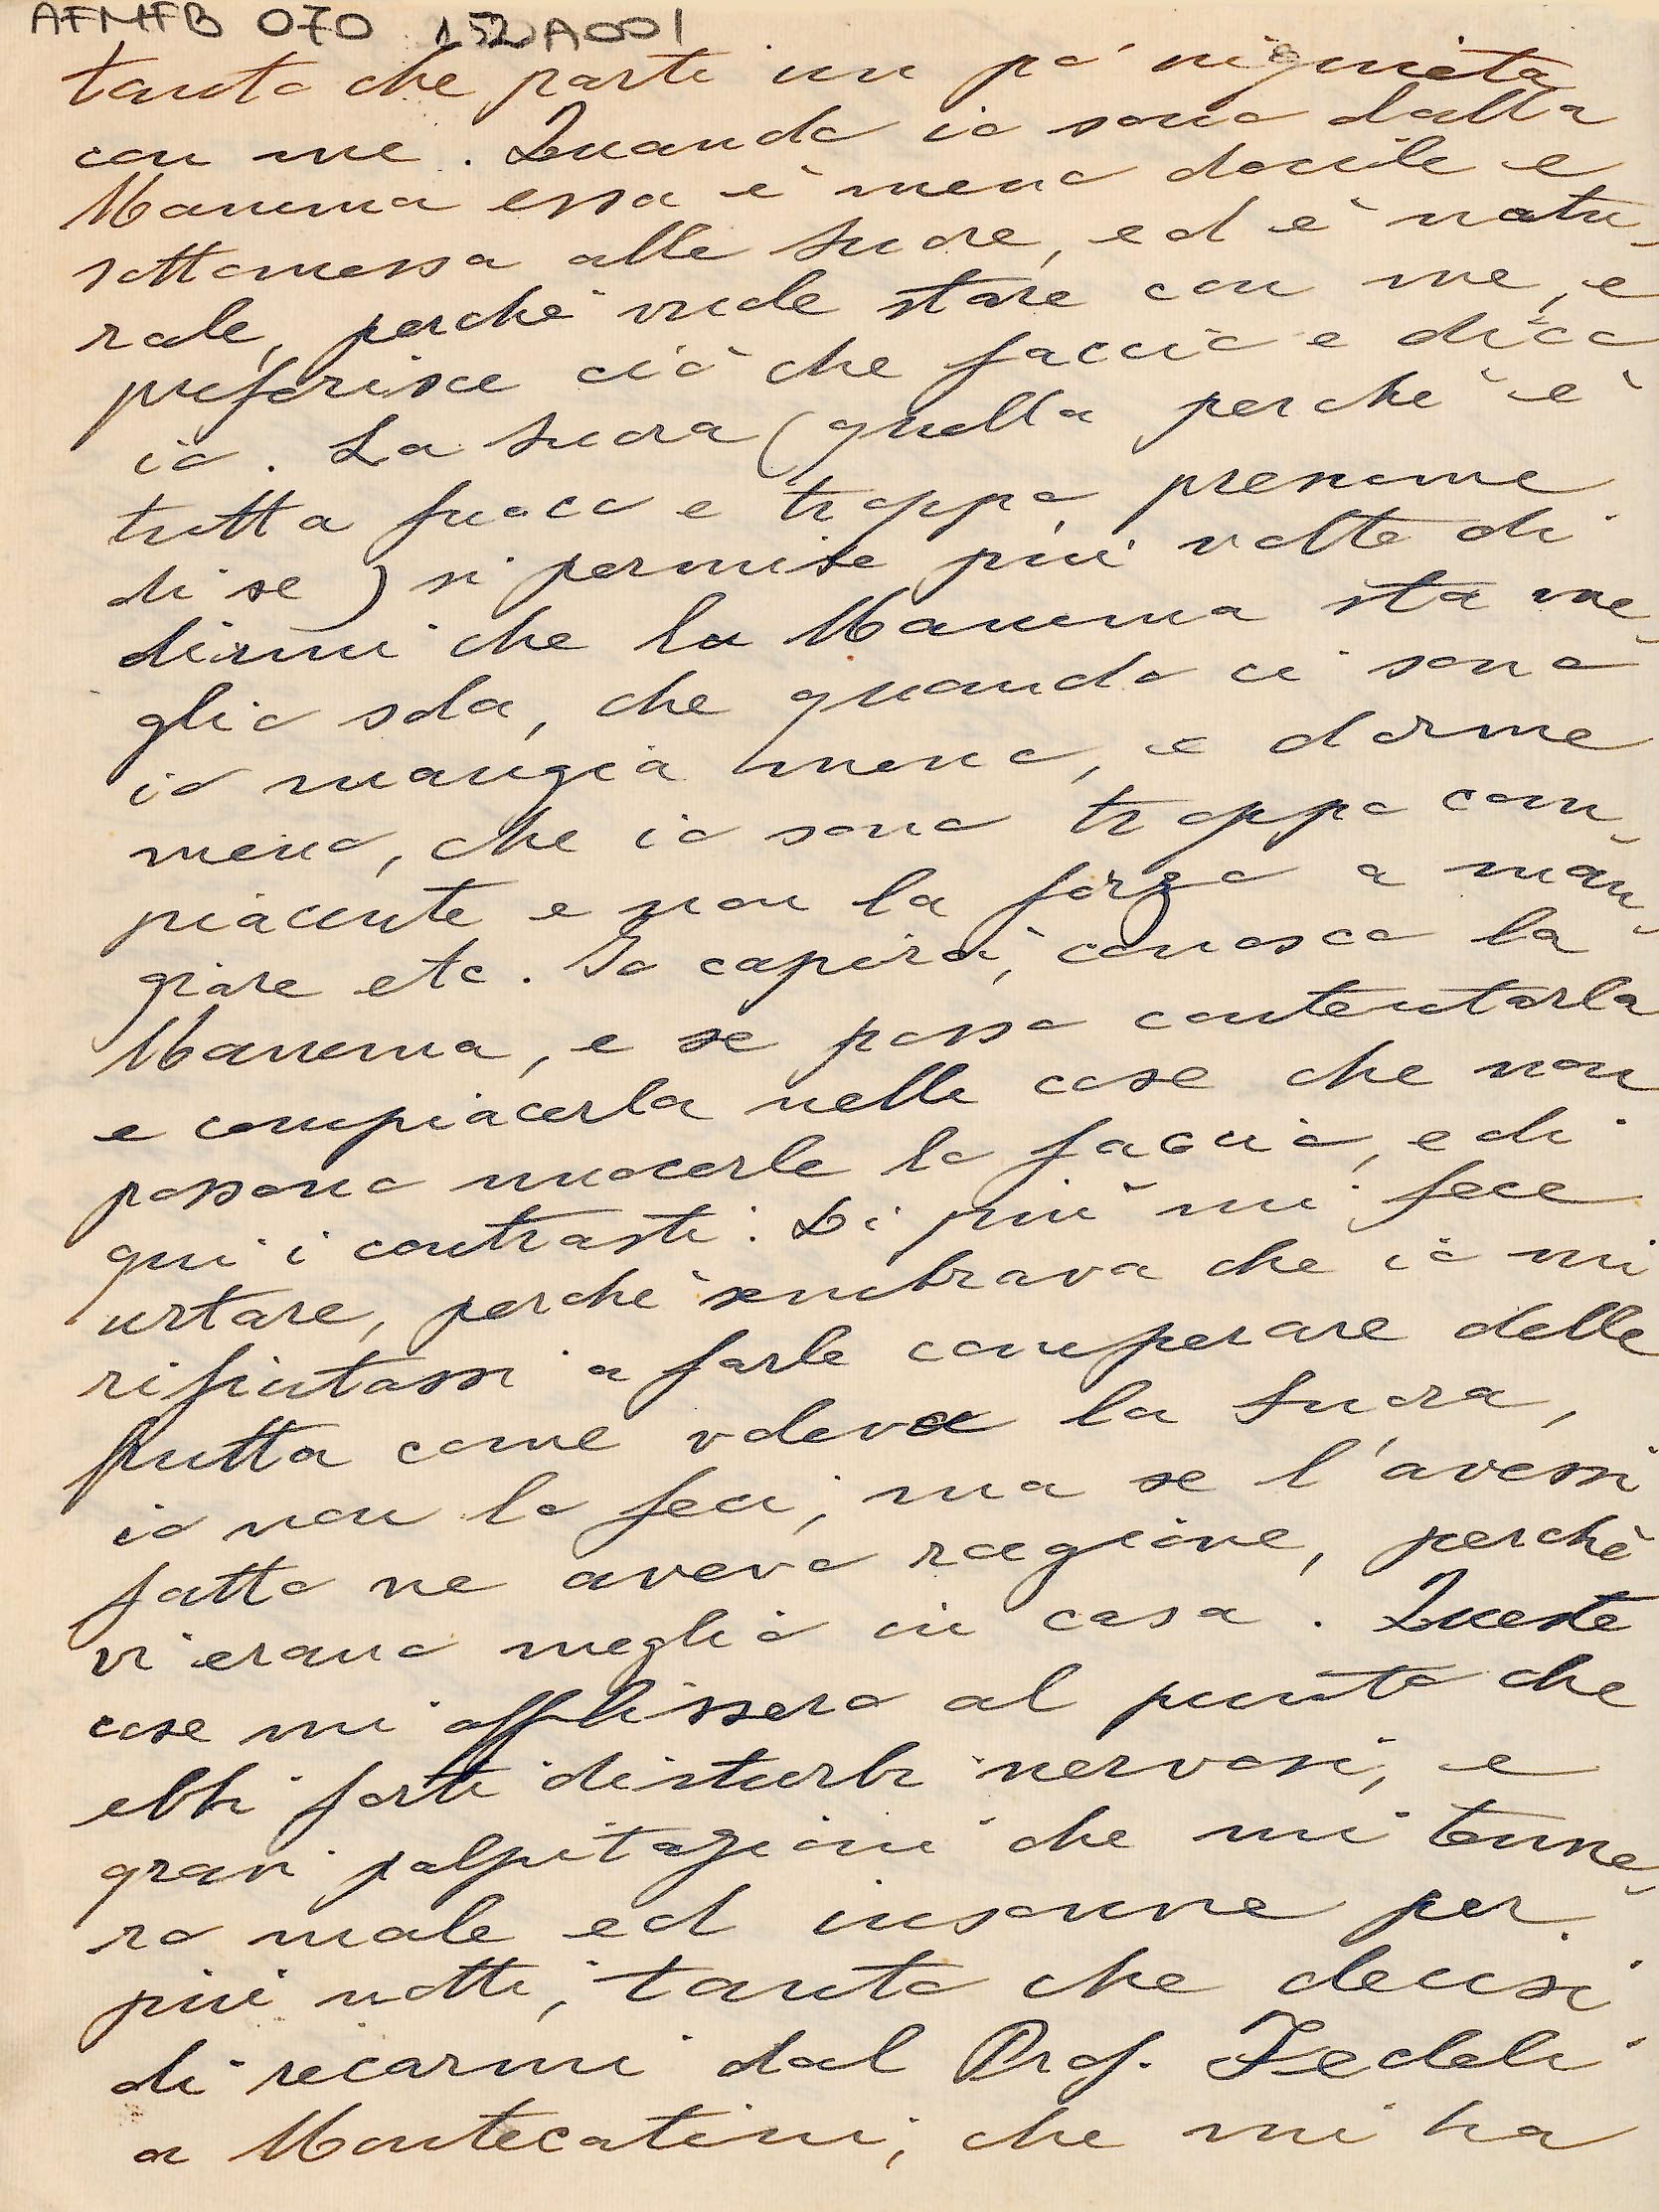 AFMFB 070 152A001
tanto che partì un po' inquieta
con me. Quando io sono dalla
Mamma essa è meno docile e
sottomessa alle Suore, ed è natu-
rale, perchè vuole stare con me, e
preferisce ciò che faccio e dico
io. La Suora (quella perchè è
tutta fuoco e troppo presume
di se) si permise più volte di
dirmi che la Mamma sta me-
glio sola, che quando ci sono
io mangia meno, e dorme
meno, che io sono troppo com-
piacente e non la forzo a man-
giare etc. Io capirai, conosco la
Mamma, e se posso contentarla
e compiacerla nelle cose che non
possono nuocerle lo faccio, e di
qui i contrasti. Di più mi fece
urtare, perchè sembrava che io mi
rifiutassi a farle comperare delle
frutta come voleva la Suora,
io non lo feci, ma se l'avessi
fatto ne avevo ragione, perchè
vi erano meglio in casa. Queste
cose mi afflissero al punto che
ebbi forti disturbi nervosi, e
gravi palpitazioni che mi tenne-
ro male ed insonne per
più notti, tanto che decisi
di recarmi dal Prof. Fedeli
a Montecatini, che mi ha